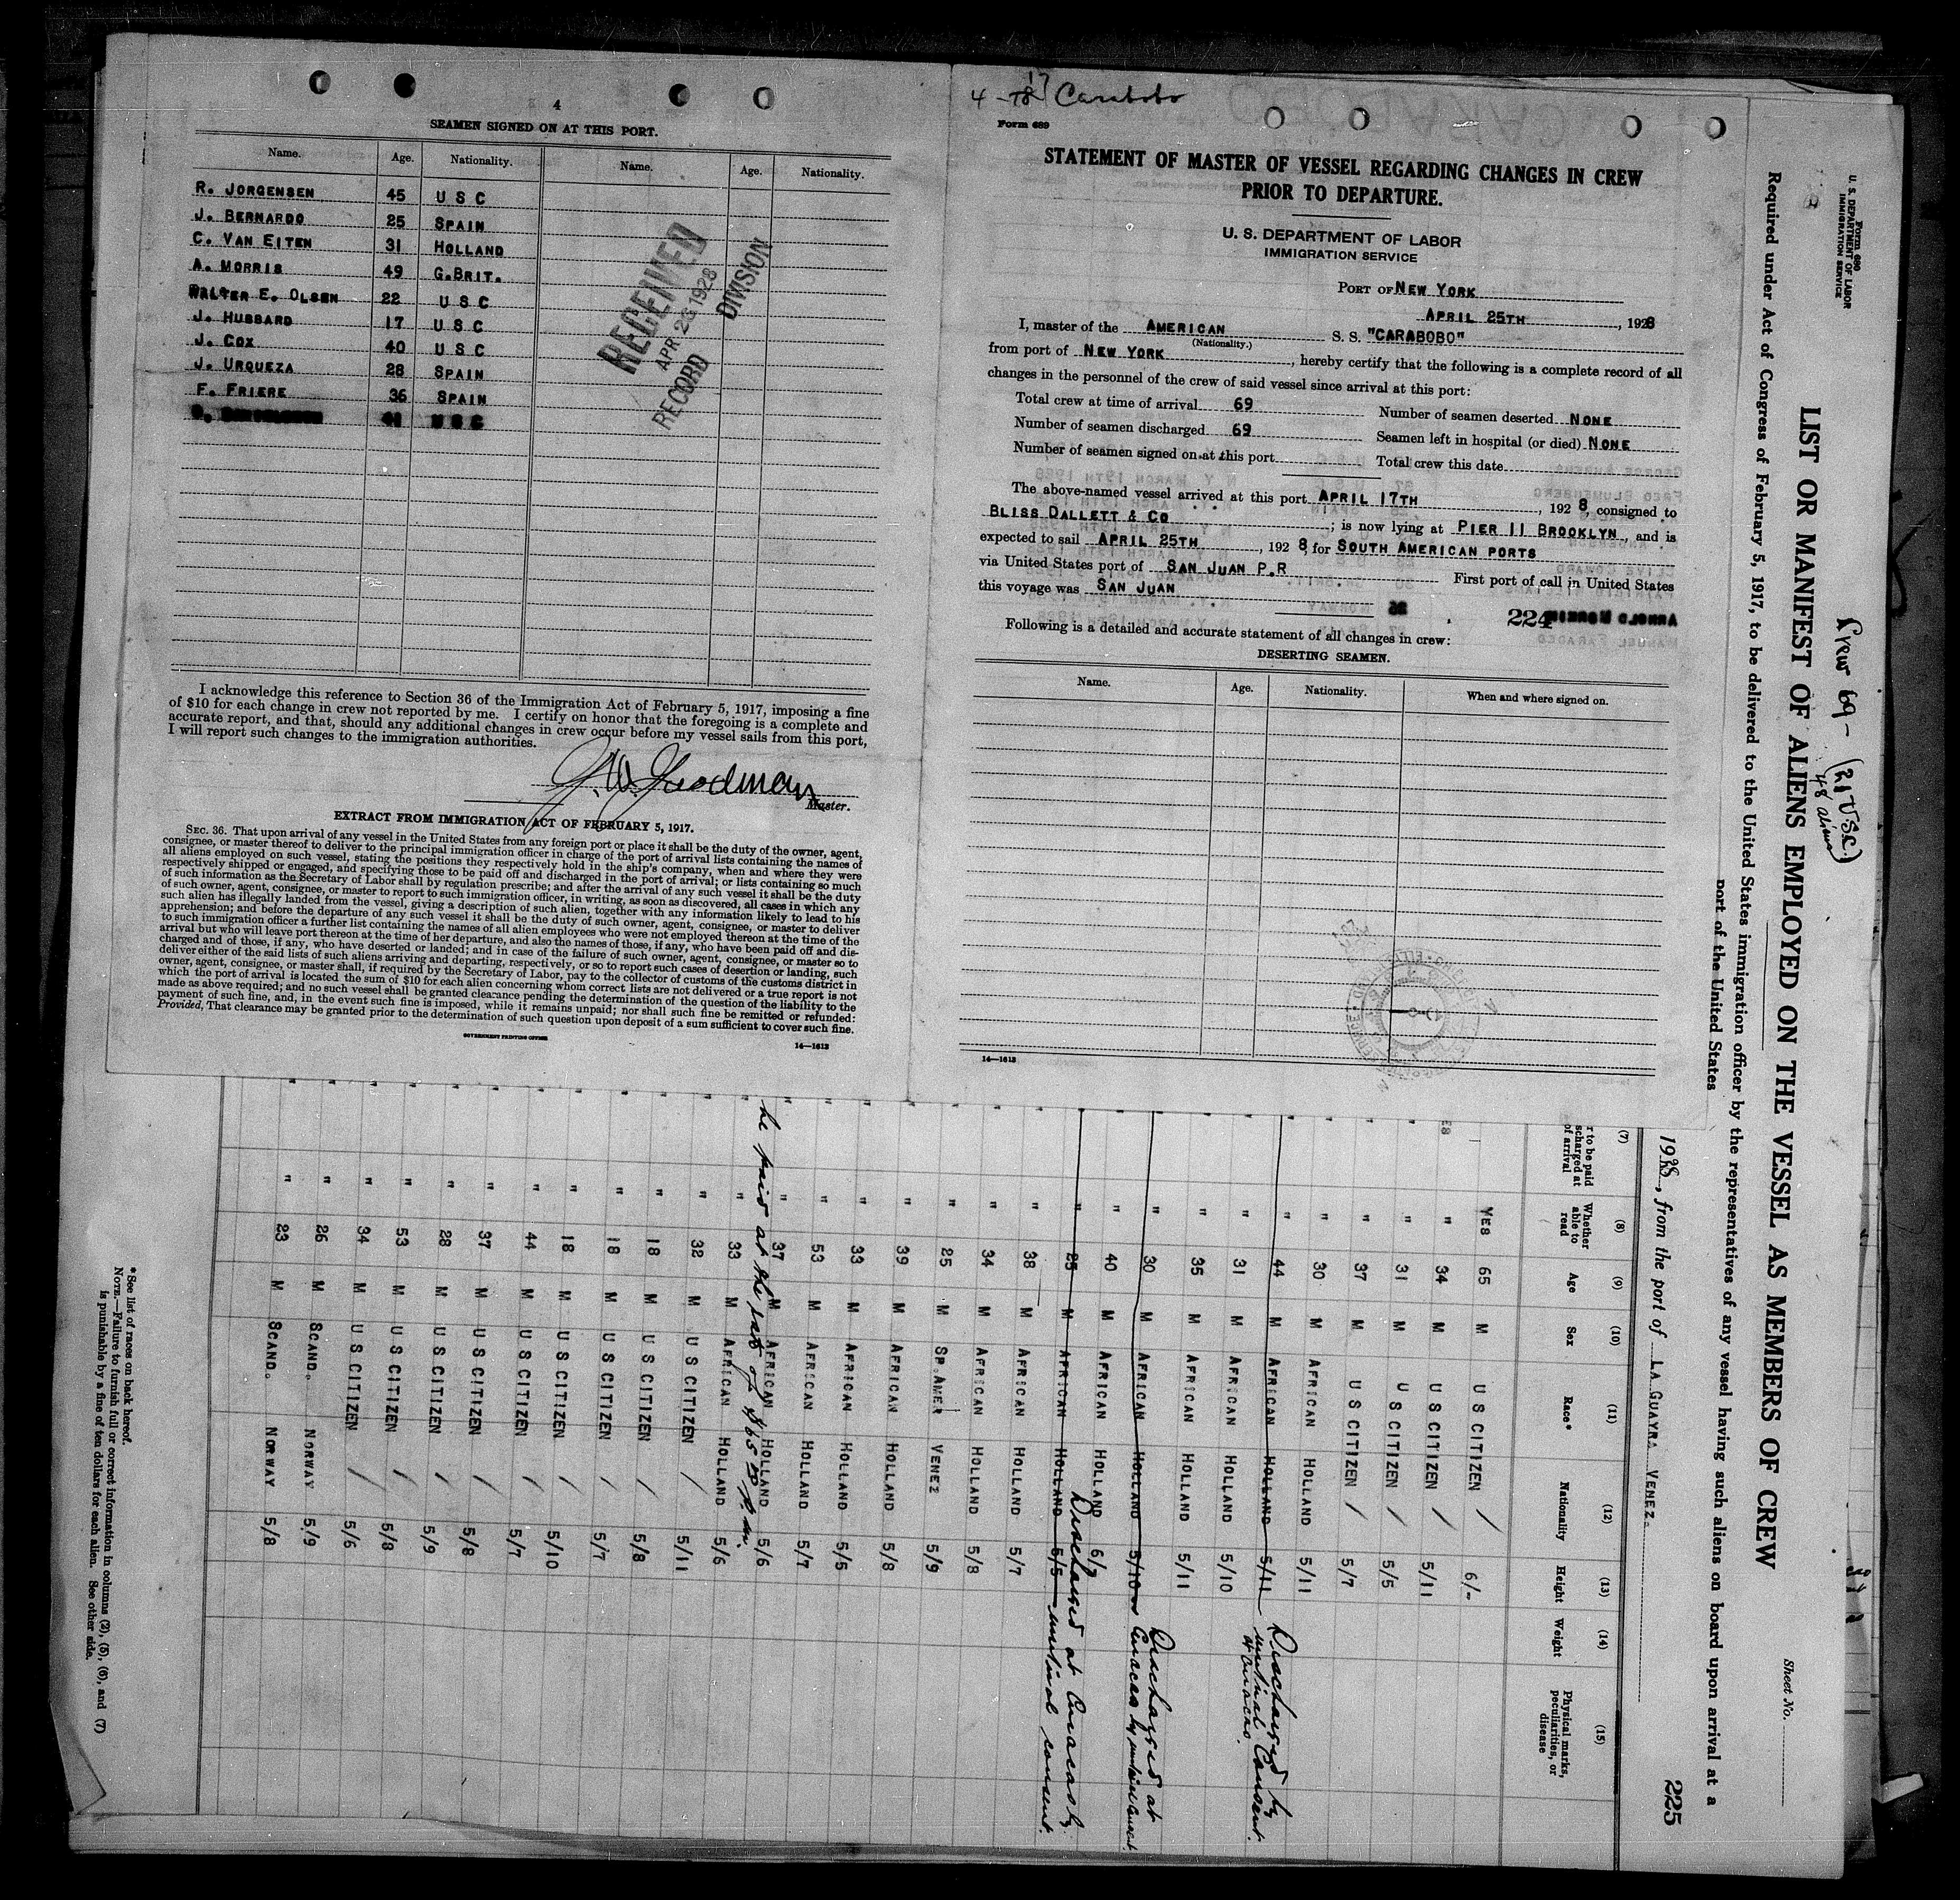 4
SEAMEN SIGNED ON AT THIS PORT.
Name. Age. Nationality. Name. Age. Nationality.
R. JORGENSEN 45 U S C
J. BERNARDO 25 SPAIN
C. VAN EITEN 31 HOLLAND
A. MORRIS 49 G.BRIT.
WALTER E. OLSEN 22 U S C
J. HUBBARD 17 U S C
J. COX 40 U S C
J. URQUEZA 28 SPAIN
F. FRIERE 36 SPAIN
RECEIVED
APR 26 1928
RECORD DIVISION
I acknowledge this reference to Section 36 of the Immigration Act of February 5, 1917, imposing a fine
of $10 for each change in crew not reported by me. I certify on honor that the foregoing is a complete and
accurate report, and that, should any additional changes in crew occur before my vessel sails from this port,
I will report such changes to the immigration authorities.
Master.
EXTRACT FROM IMMIGRATION ACT OF FEBRUARY 5, 1917.
SEC. 36. That upon arrival of any vessel in the United States from any foreign port or place it shall be the duty of the owner, agent,
consignee, or master thereof to deliver to the principal immigration officer in charge of the port of arrival lists containing the names of
all aliens employed on such vessel, stating the positions they respectively hold in the ship's company, when and where they were
respectively shipped or engaged, and specifying those to be paid off and discharged in the port of arrival; or lists containing so much
of such information as the Secretary of Labor shall by regulation prescribe; and after the arrival of any such vessel it shall be the duty
of such owner, agent, consignee, or master to report to such immigration officer, in writing, as soon as discovered, all cases in which any
such alien has illegally landed from the vessel, giving a description of such alien, together with any information likely to lead to his
apprehension; and before the departure of any such vessel it shall be the duty of such owner, agent, consignee, or master to deliver
to such immigration officer a further list containing the names of all alien employees who were not employed thereon at the time of the
arrival but who will leave port thereon at the time of her departure, and also the names of those, if any, who have been paid off and dis-
charged and of those, if any, who have deserted or landed; and in case of the failure of such owner, agent, consignee, or master so to
deliver either of the said lists of such aliens arriving and departing, respectively, or so to report such cases of desertion or landing, such
owner, agent, consignee, or master shall, if required by the Secretary of Labor, pay to the collector of customs of the customs district in
which the port of arrival is located the sum of $10 for each alien concerning whom correct lists are not delivered or a true report is not
made as above required; and no such vessel shall be granted clearance pending the determination of the question of the liability to the
payment of such fine, and, in the event such fine is imposed, while it remains unpaid; nor shall such fine be remitted or refunded:
Provided, That clearance may be granted prior to the determination of such question upon deposit of a sum sufficient to cover such fine.
GOVERNMENT PRINTING OFFICE
14—1613
4 - 18 17 Carabobo
Form 689
STATEMENT OF MASTER OF VESSEL REGARDING CHANGES IN CREW
PRIOR TO DEPARTURE.
U. S. DEPARTMENT OF LABOR
IMMIGRATION SERVICE
PORT OF NEW YORK
APRIL 25TH, 1928
I, master of the AMERICAN S. S. "CARABOBO"
(Nationality.)
from port of NEW YORK, hereby certify that the following is a complete record of all
changes in the personnel of the crew of said vessel since arrival at this port:
Total crew at time of arrival 69 Number of seamen deserted NONE
Number of seamen discharged 69 Seamen left in hospital (or died) NONE
Number of seamen signed on at this port Total crew this date
The above-named vessel arrived at this port APRIL 17TH, 1928, consigned to
BLISS DALLETT & CO; is now lying at PIER 11 BROOKLYN, and is
expected to sail APRIL 25TH, 1928, for SOUTH AMERICAN PORTS
via United States port of SAN JUAN P.R First port of call in United States
this voyage was SAN JUAN
224
Following is a detailed and accurate statement of all changes in crew:
DESERTING SEAMEN.
Name. Age. Nationality. When and where signed on.
14—1613
Form 680
U. S. DEPARTMENT OF LABOR
IMMIGRATION SERVICE
Crew 69 - (21 USC.)
48 aliens
LIST OR MANIFEST OF ALIENS EMPLOYED ON THE VESSEL AS MEMBERS OF CREW
Sheet No.
Required under Act of Congress of February 5, 1917, to be delivered to the United States immigration officer by the representatives of any vessel having such aliens on board upon arrival at a
port of the United States
1928, from the port of LA GUAYRA VENEZ.
225
(7) (8) (9) (10) (11) (12) (13) (14) (15)
r to be paid scharged at of arrival Whether able to read Age Sex Race* Nationality Height Weight Physical marks, peculiarities, or disease
YES 65 M U S CITIZEN / 6/-
" 34 M U S CITIZEN / 5/11
" 31 M U S CITIZEN / 5/5
" 37 M U S CITIZEN / 5/7
" 30 M AFRICAN HOLLAND 5/11
" 44 M AFRICAN HOLLAND 5/11 Discharged by mutual Consent at Curacao.
" 31 M AFRICAN HOLLAND 5/10
" 35 M AFRICAN HOLLAND 5/11
" 30 M AFRICAN HOLLAND 5/10 Discharged at Curacao by mutual Consent
" 40 M AFRICAN HOLLAND 6/2
" 25 M AFRICAN HOLLAND 5/5 Discharged at Curacao by mutual consent.
" 38 M AFRICAN HOLLAND 5/7
" 34 M AFRICAN HOLLAND 5/8
" 25 M SP.AMER VENEZ 5/9
" 39 M AFRICAN HOLLAND 5/8
" 33 M AFRICAN HOLLAND 5/5
" 53 M AFRICAN HOLLAND 5/7
" 37 M AFRICAN HOLLAND 5/6
be paid at the rate of $65
" 33 M AFRICAN HOLLAND 5/6
" 32 M U S CITIZEN / 5/11
" 18 M U S CITIZEN / 5/8
" 18 M U S CITIZEN / 5/7
" 18 M U S CITIZEN / 5/10
" 44 M U S CITIZEN / 5/7
" 37 M U S CITIZEN / 5/8
" 28 M U S CITIZEN / 5/9
" 53 M U S CITIZEN / 5/8
" 34 M U S CITIZEN / 5/6
" 26 M SCAND. NORWAY 5/9
" 23 M SCAND. NORWAY 5/8
*See list of races on back hereof.
NOTE.—Failure to furnish full or correct information in columns (2), (5), (6), and (7)
is punishable by a fine of ten dollars for each alien. See other side.